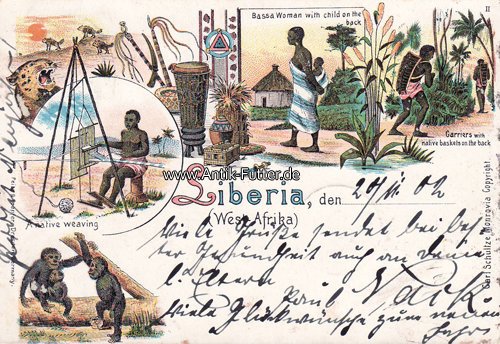 Bassa Woman with child on the
back
II
Carriers with
native baskets on the back
www.Antik-Futter.de
A native weaving
Liberia, den 29/11 02
(West-Afrika)
Viele Grüße sendet bei bes-
ter Gesundheit auch an deine
l. Eltern
Paul
Viele Glückwünsche zum neuen
Jahre
Carl Schultze Monrovia Copyright